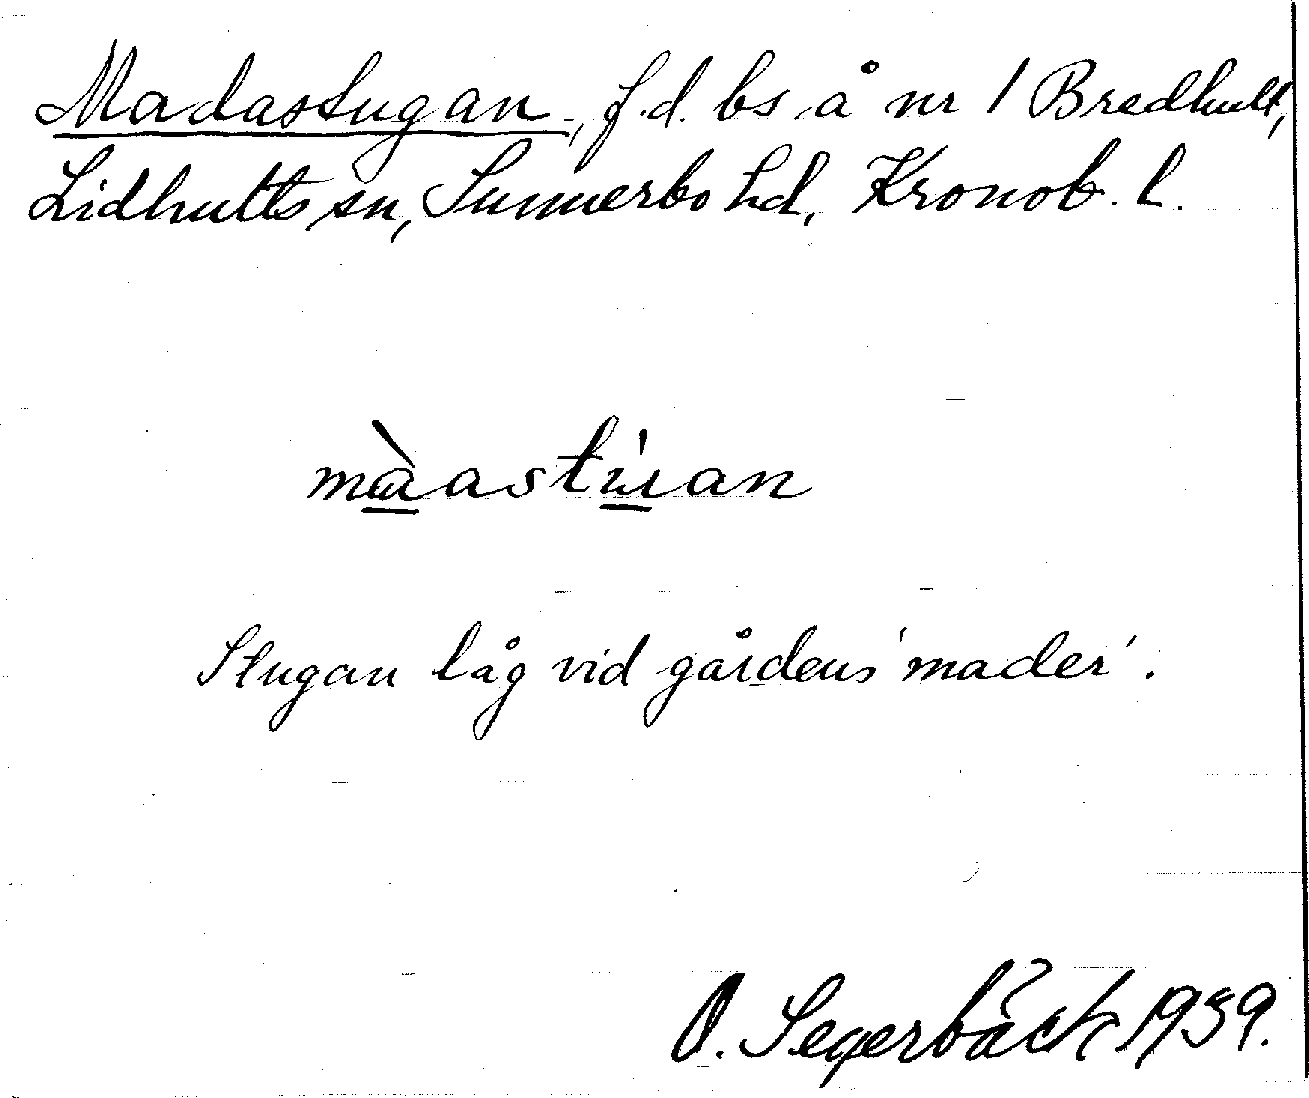 Madastugan, f.d. bs å nr 1 Bredhult,
Lidhults sn, Sunnerbo hd, Kronob. l.
màastúan
Stugan låg vid gårdens 'mader'.
O. Segerbäck 1939.